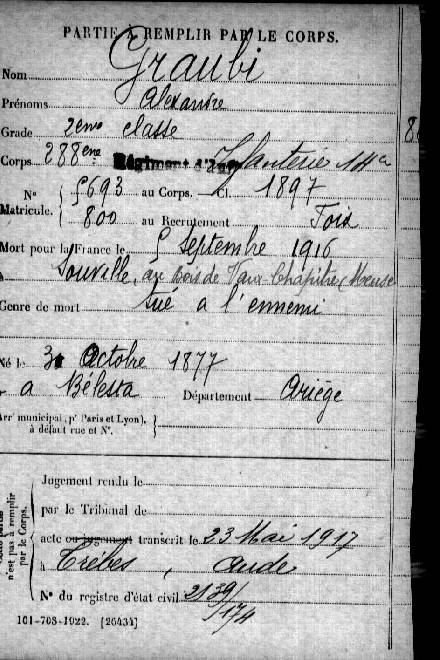 PARTIE À REMPLIR PAR LE CORPS.
Nom Graubi
Prénoms Alexandre
Grade 2eme classe
Corps 288eme Régiment d'Infanterie
N° Matricule. 5693 au Corps. — Cl. 1897
800 au Recrutement Foix
Mort pour la France le 5 Septembre 1916
à Souville, au bois de Vaux Chapitre (Meuse
Genre de mort tué à l'ennemi
Né le 3 Octobre 1877
à Bélesta Département Ariège
Arr^t municipal (p^r Paris et Lyon), à défaut rue et N°.
Jugement rendu le
par le Tribunal de
acte ou jugement transcrit le 23 Mai 1917
à Trèbes, Aude
N° du registre d'état civil 2139/174
n'est pas à remplir par le Corps.
101-708-1922. [26434]